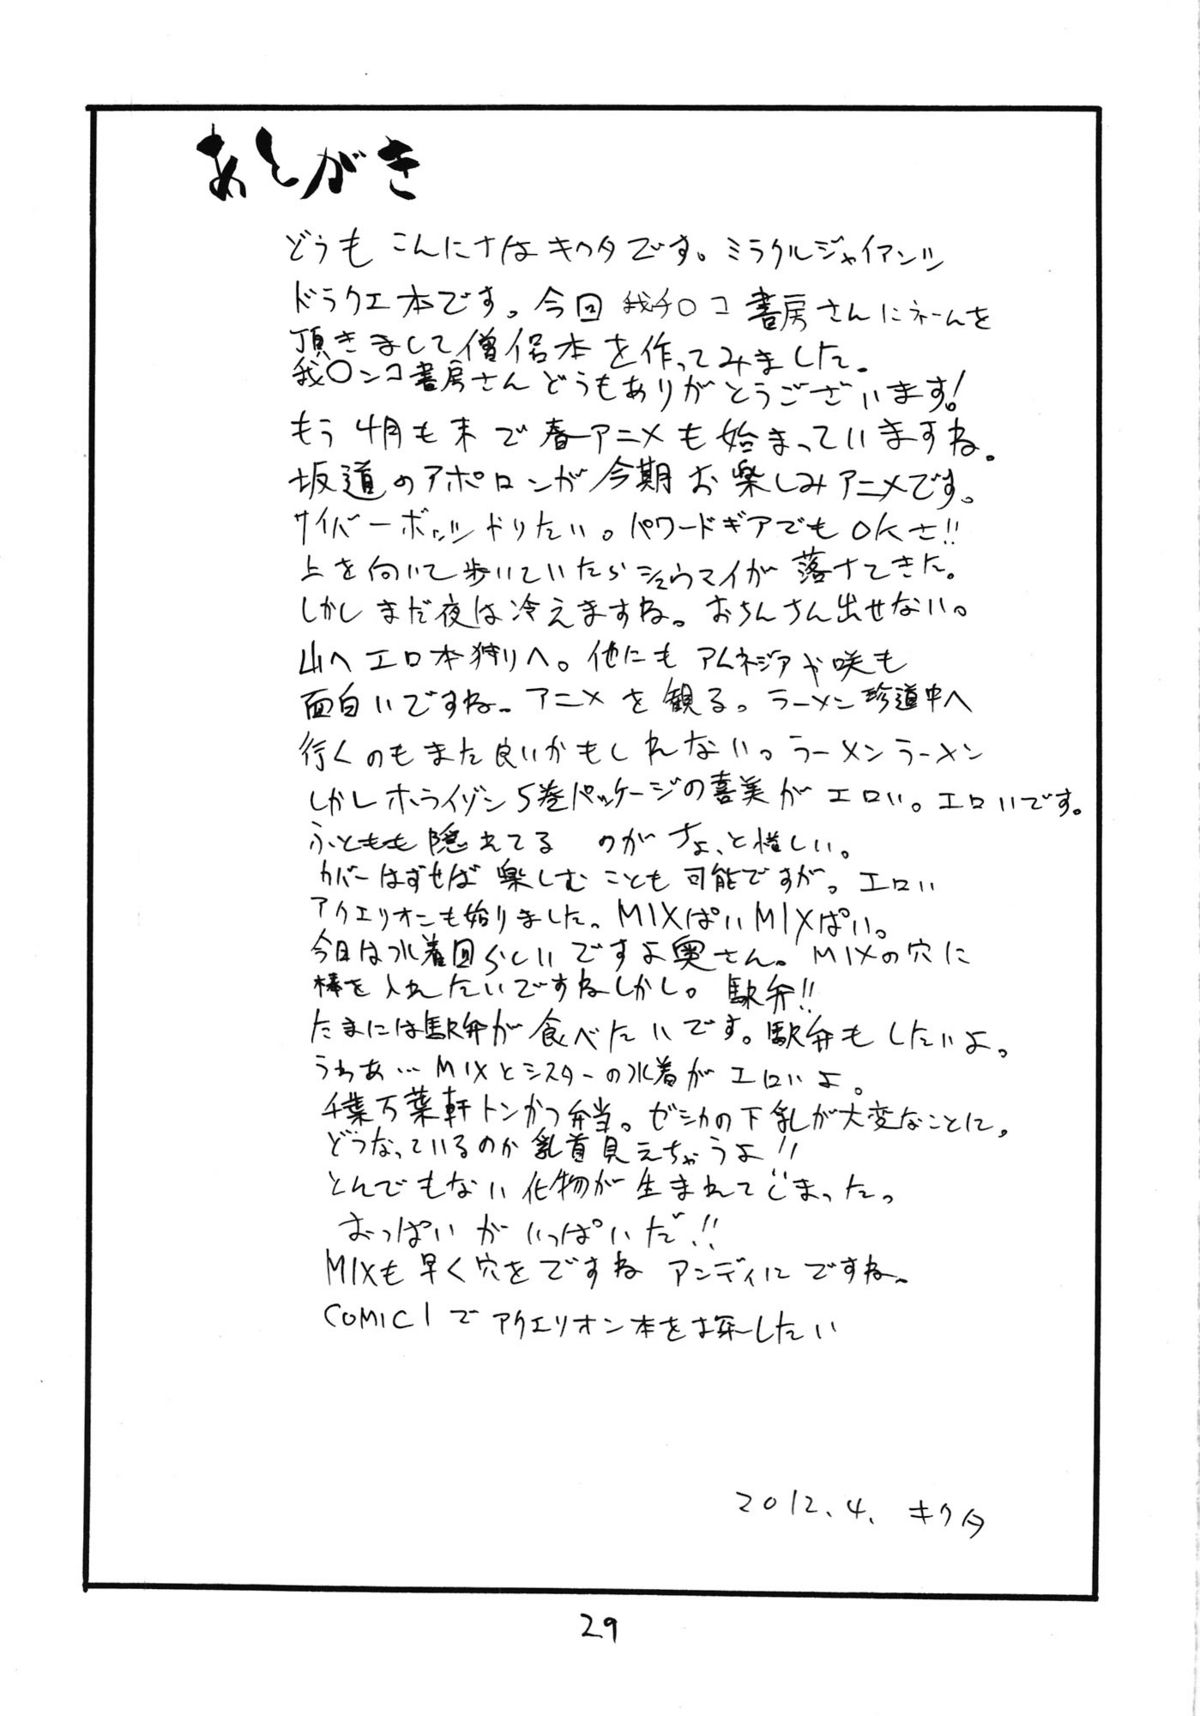 あとがき
どうも こんにちは キクタです。ミラクルジャイアンツ
ドラクエ本です。今回 我チ〇コ書房さんにネームを
頂きまして僧侶本を作ってみました。
我〇ンコ書房さんどうもありがとうございます!
もう4月も末で春アニメも始まっていますね。
坂道のアポロンが今期お楽しみアニメです。
サイバーボッツやりたい。パワードギアでもOKさ!!
上を向いて歩いていたらシュウマイが落ちてきた。
しかしまだ夜は冷えますね。おちんちん出せない。
山へエロ本狩りへ。他にもアムネジアや咲も
面白いですね。アニメを観る。ラーメン珍道中へ
行くのもまた良いかもしれない。ラーメンラーメン
しかしホライゾン5巻パッケージの喜美がエロい。エロいです。
ふともも隠れてる のがちょっと惜しい。
カバーはずせば楽しむことも可能ですが。エロい
アクエリオンも始りました。MIXぱいMIXぱい。
今日は水着回らしいですよ奥さん。MIXの穴に
棒を入れたいですねしかし。駅弁!!
たまには駅弁が食べたいです。駅弁もしたいよ。
うわあ…MIXとシスターの水着がエロいよ。
千葉万葉軒トンかつ弁当。ゼシカの下乳が大変なことに。
どうなっているのか乳首見えちゃうよ!!
とんでもない化物が生まれてしまったっ
おっぱいがいっぱいだ!!
MIXも早く穴をですね アンディにですね。
COMIC1でアクエリオン本を探したい
2012.4. キクタ
29